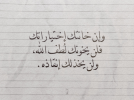 وإن خانتك إختياراتك
فلن يخونك لطف الله،
ولن يخذلك إنقاذه.